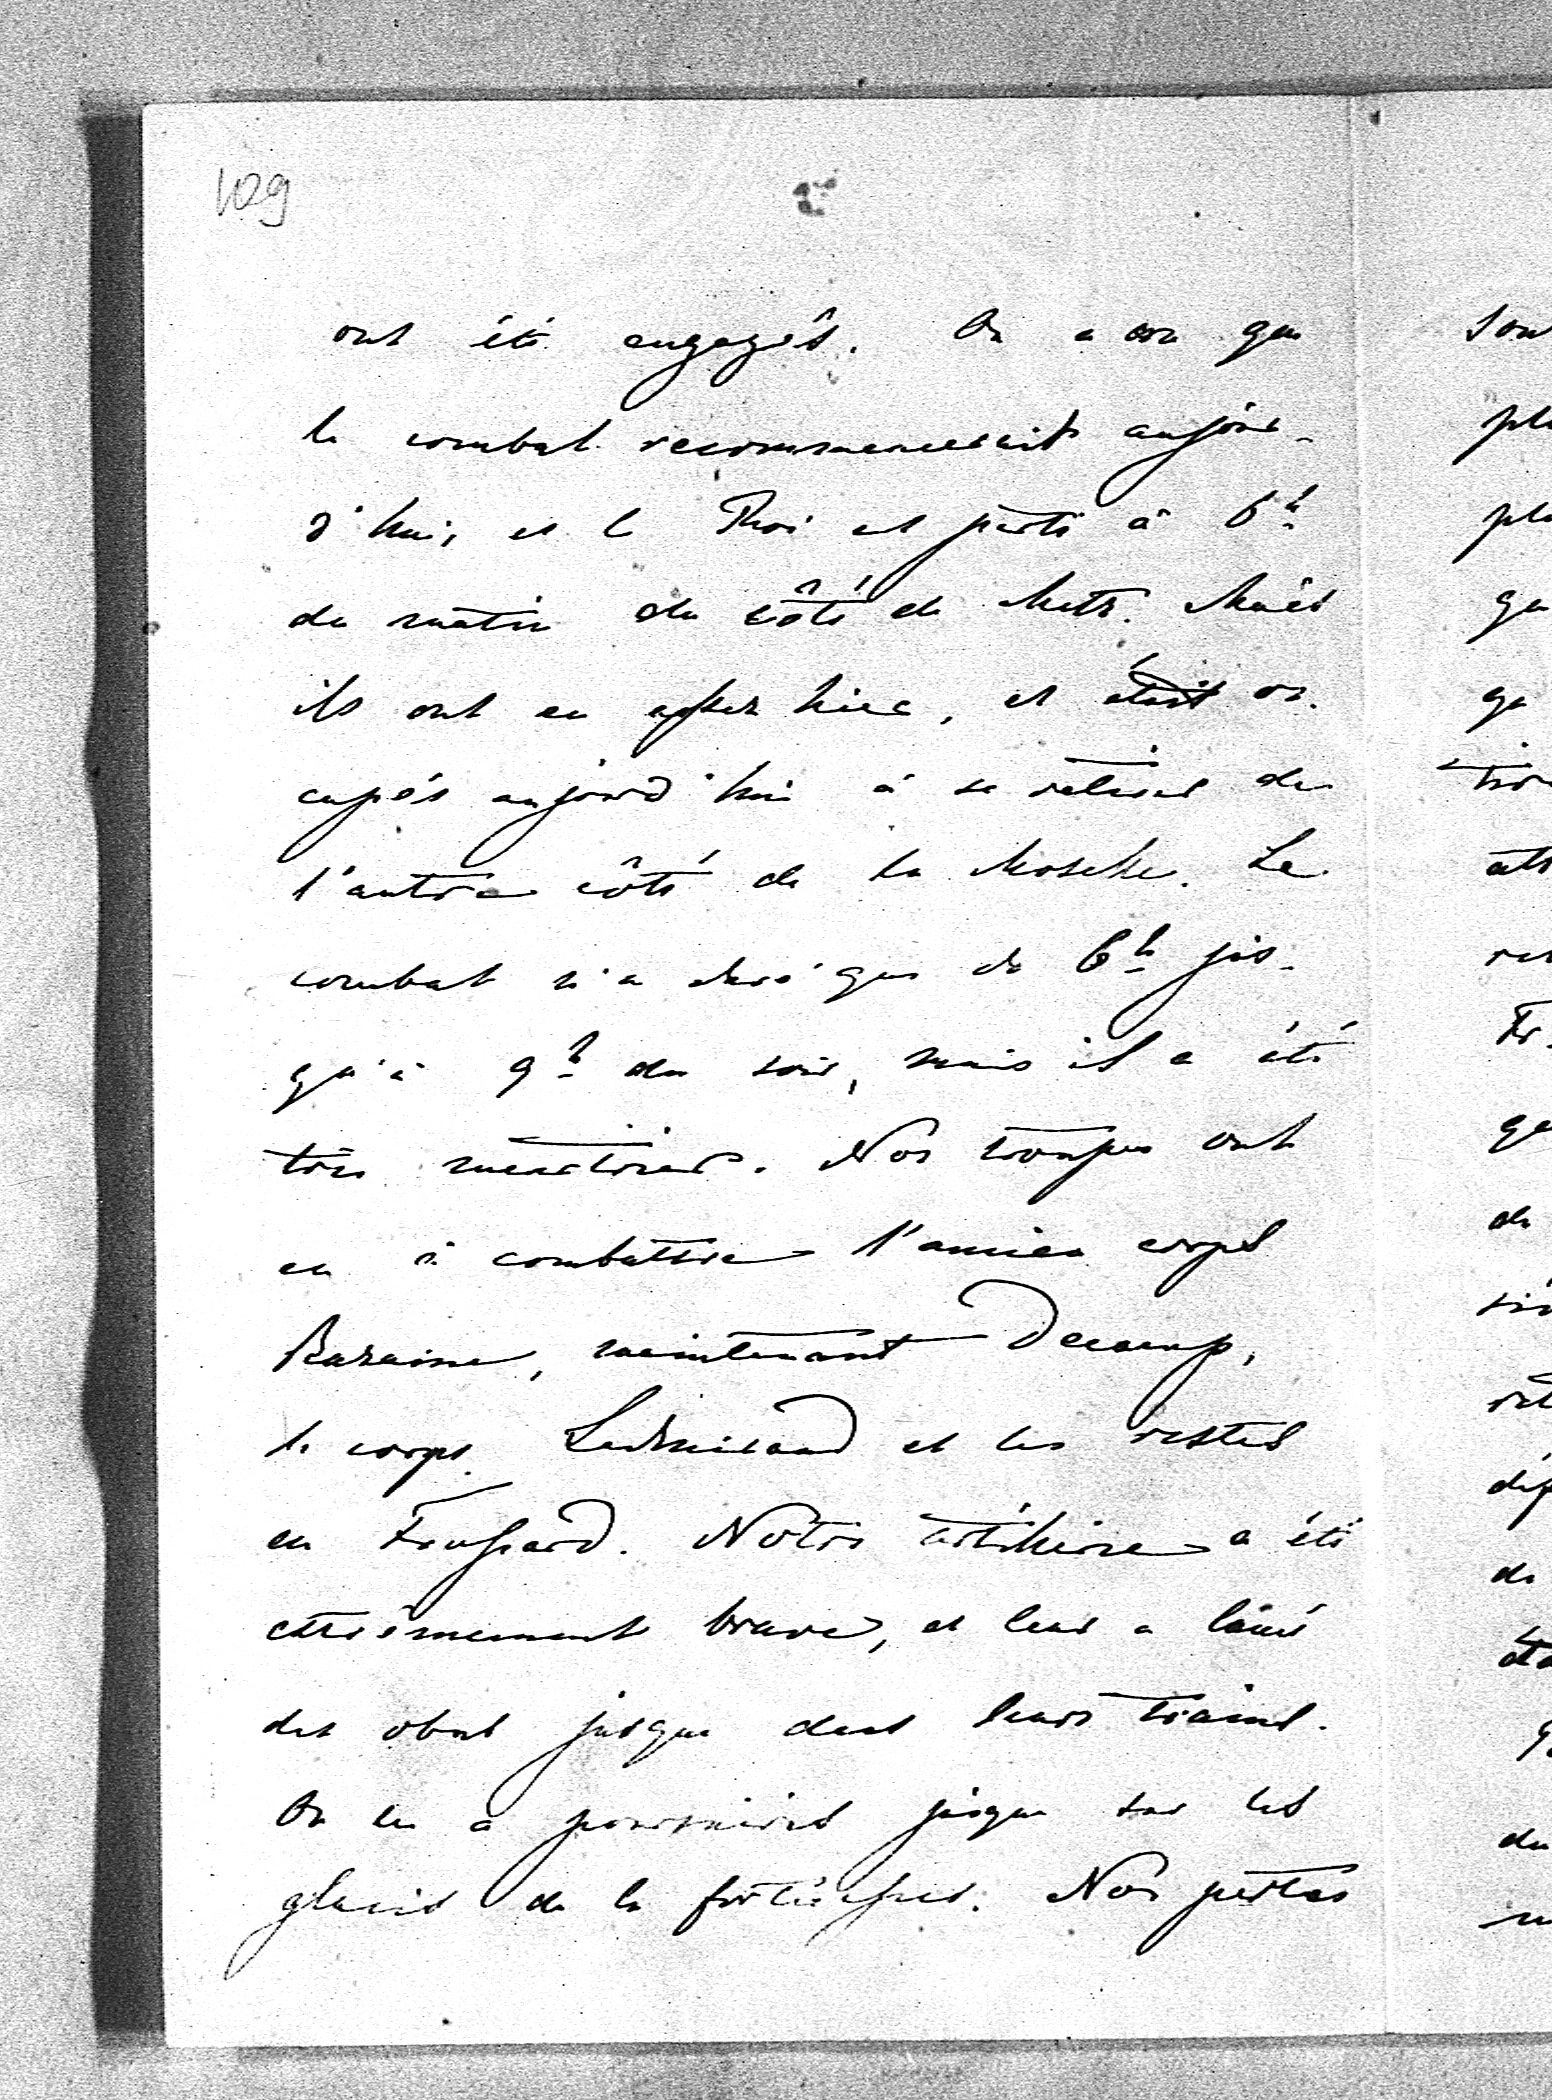 109
ont été engagés. On a cru que
le combat recommencerait aujour-
d'hui, et le Roi est parti à 6h
du matin du côté de Metz. Mais
ils ont eu assez hier, et étai[en]t oc-
cupés aujourd'hui à se retirer de
l'autre côté de la Moselle. Le
combat n'a duré que de 6h jus-
qu'à 9h du soir, mais il a été
très meurtrier. Nos troupes ont
eu à combattre l'ancien corps
Bazaine, maintenant Decaen,
le corps Ladmirault et les restes
du Frossard. Notre artillerie a été
extrêmement brave, et leur a lancé
des obus jusque dans leurs trains.
On les a poursuivis jusque sur les
glacis de la forteresse. Nos pertes